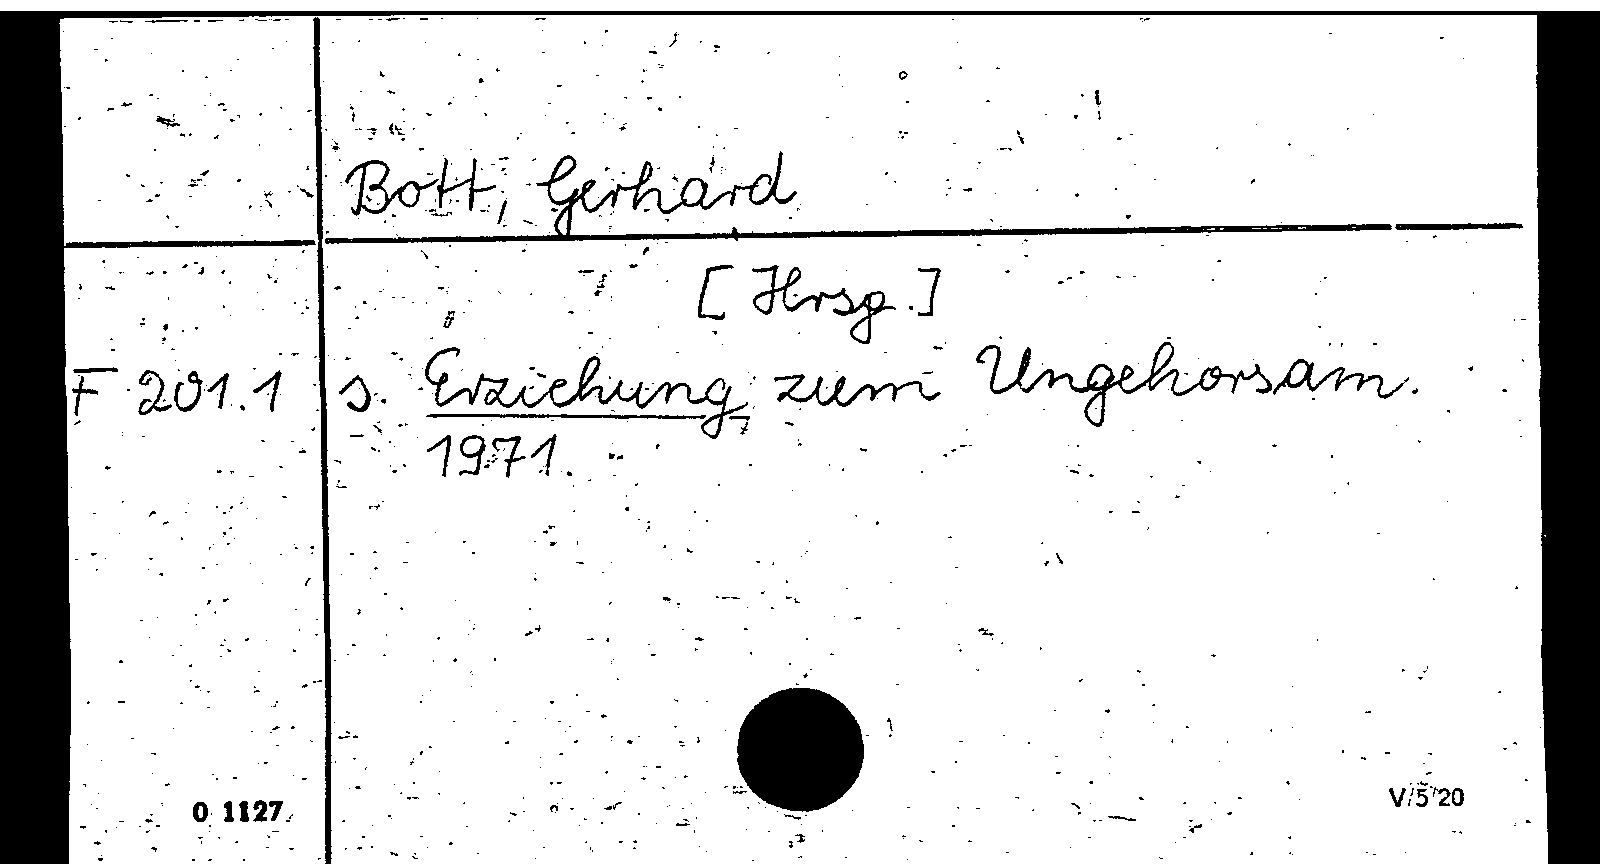 Bott, Gerhard
[Hrsg.]
F 201.1 s. Erziehung zum Ungehorsam.
1971.
O 1127
V/5/20